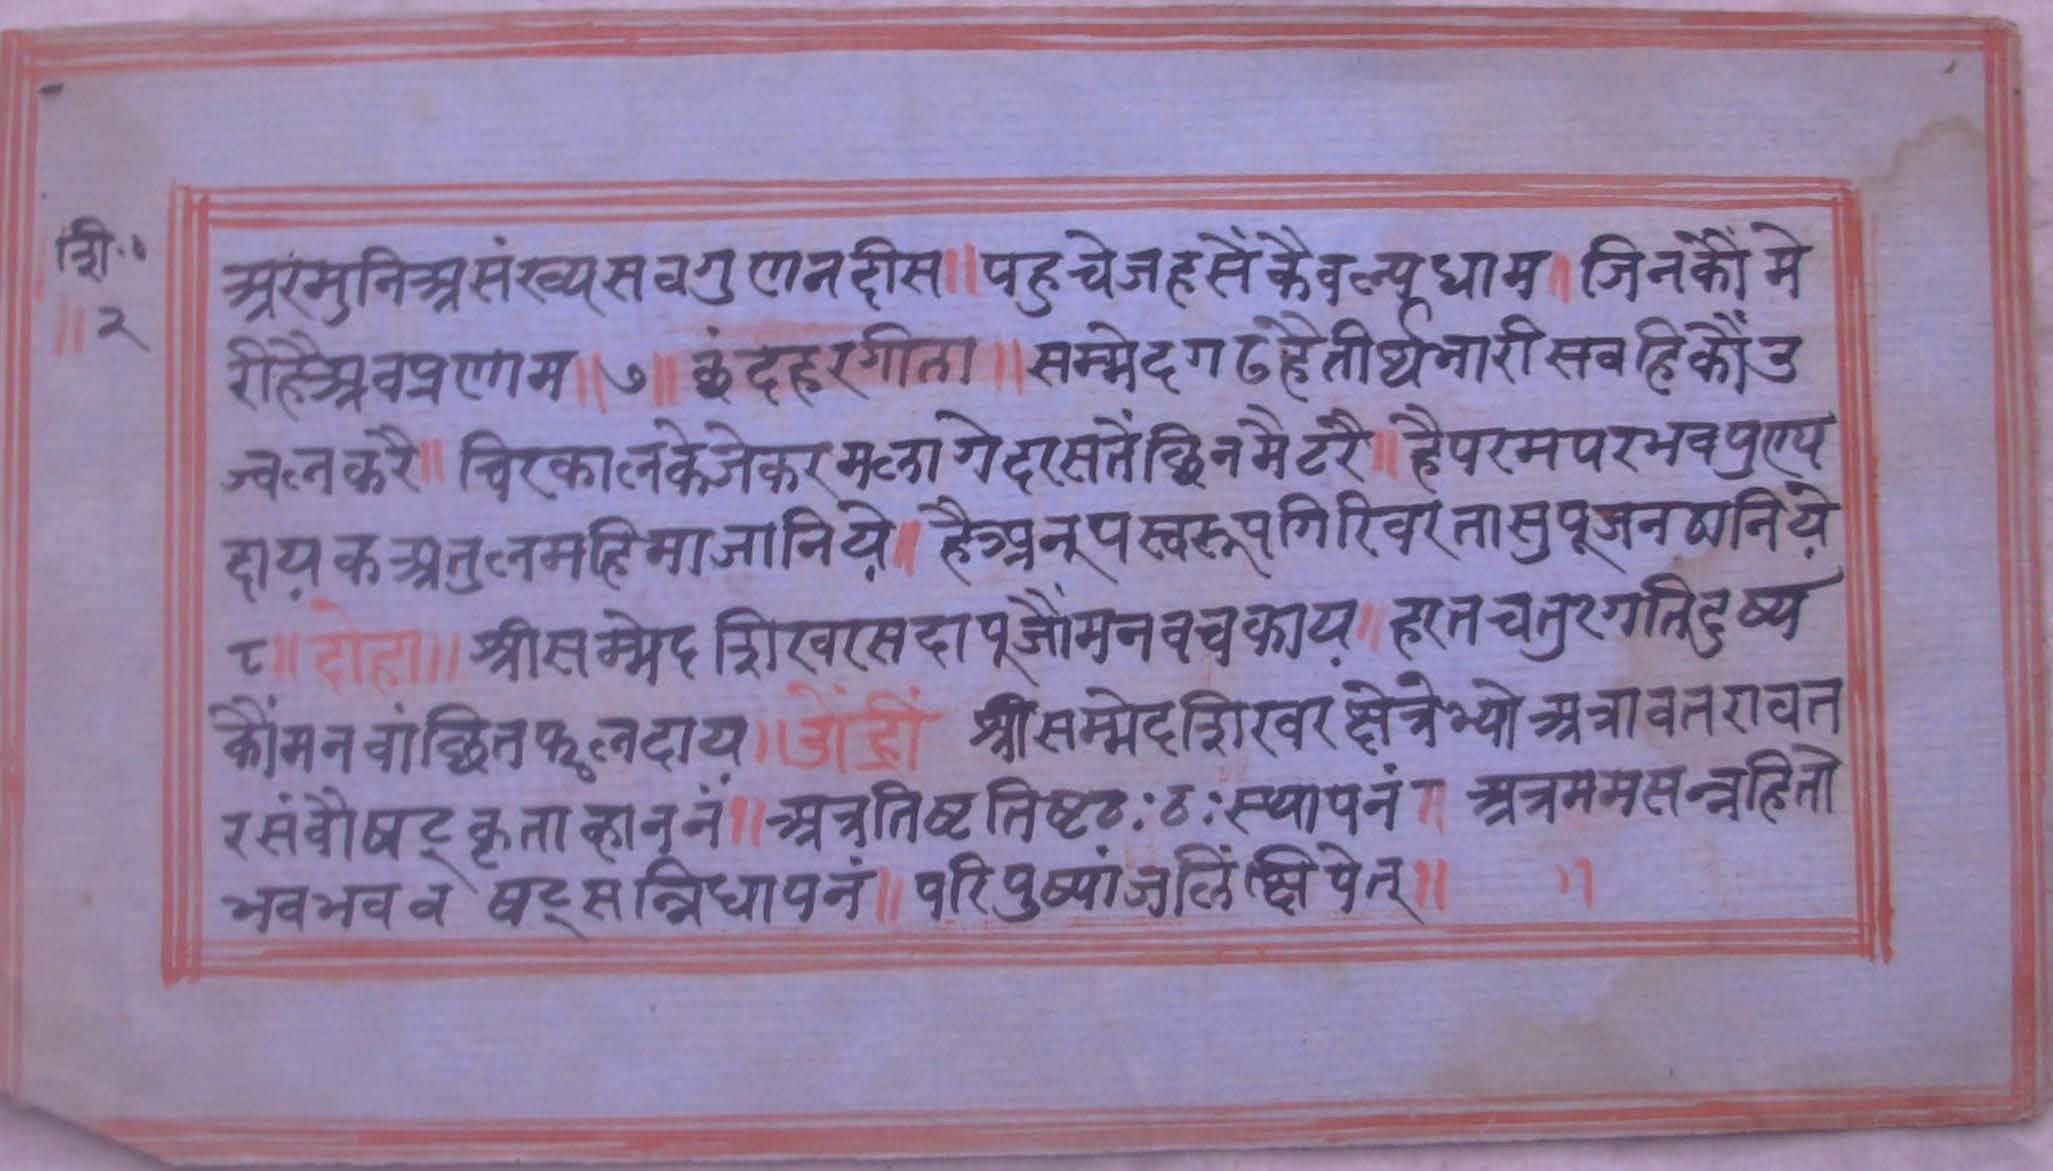 शि.०
॥२
अरंमुनिअसंख्यसवगुणनदीस॥पहुचेजहसेंकैवल्यधाम॥जिनकौंमे
रीहैअवप्रणम॥७॥छंदहरगीता॥सम्मेदगढहैतीर्थभारीसवहिकौंउ
ज्वलकरै॥चिरकालकेजेकरमलागेदरसतेंछिनमैटरै॥हैपरमपरभवपुण्य
दाय़कअतुलमहिमाजानिय़े॥हैअनूपस्वरूपगिरिवरतासुपूजनठानिय़े
८॥दोहा॥श्रीसम्मेदशिखरसदापूजौंमनवचकाय़॥हरतचतुरगतिदुष्य
कौंमनवांछितफलदाय॥ओंह्रीं श्रीसम्मेदशिखरक्षेत्रेभ्योअत्रावतरावत
रसंवौषट्कृताह्वाननं॥अत्रतिष्टतिष्टठ:ठ:स्थापनं॥ अत्रममसन्नहितो
भवभवव षट्सन्निधापनं॥परिपुष्पांजलिंक्षिपेत्॥ ॥